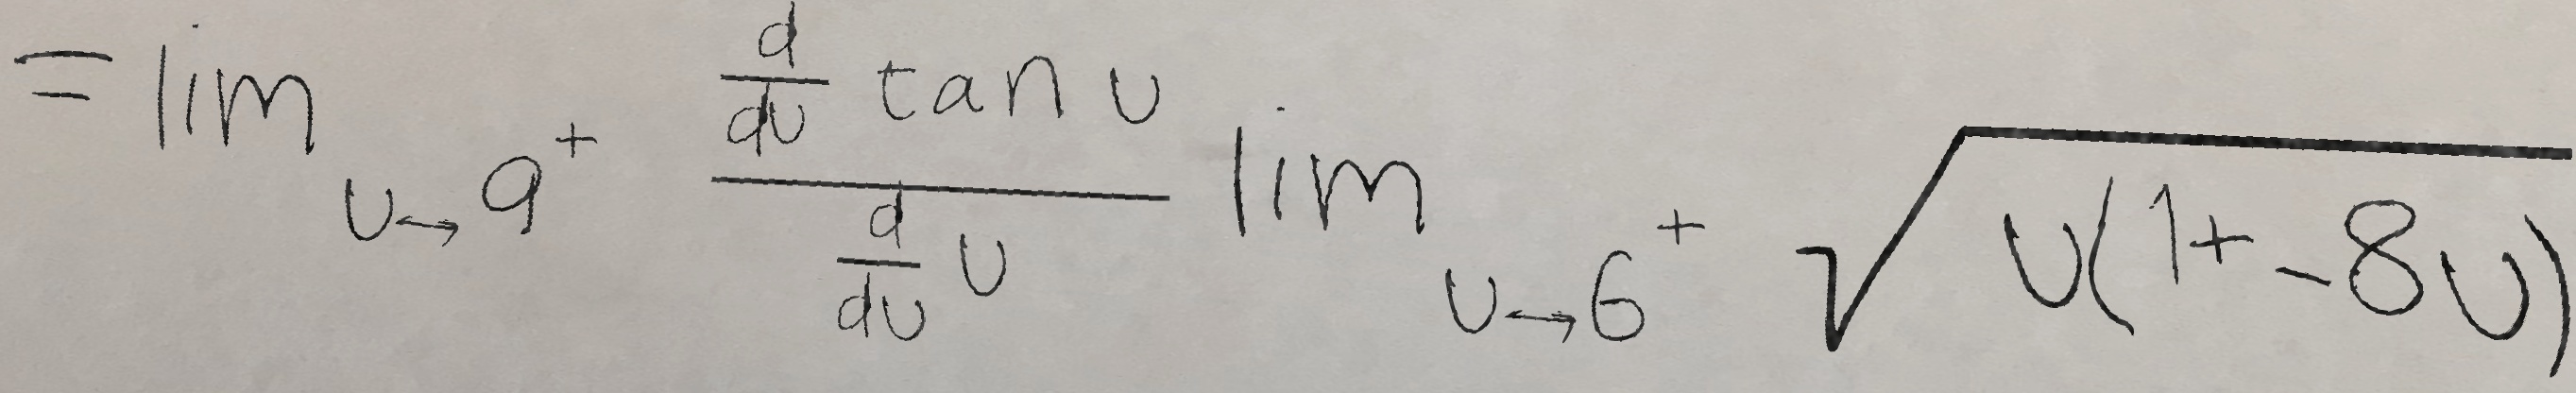 $= \lim_{u \to 9^+} \frac{\frac{d}{du} \tan u}{\frac{d}{du} u} \lim_{u \to 6^+} \sqrt{u(1 + -8u)}$